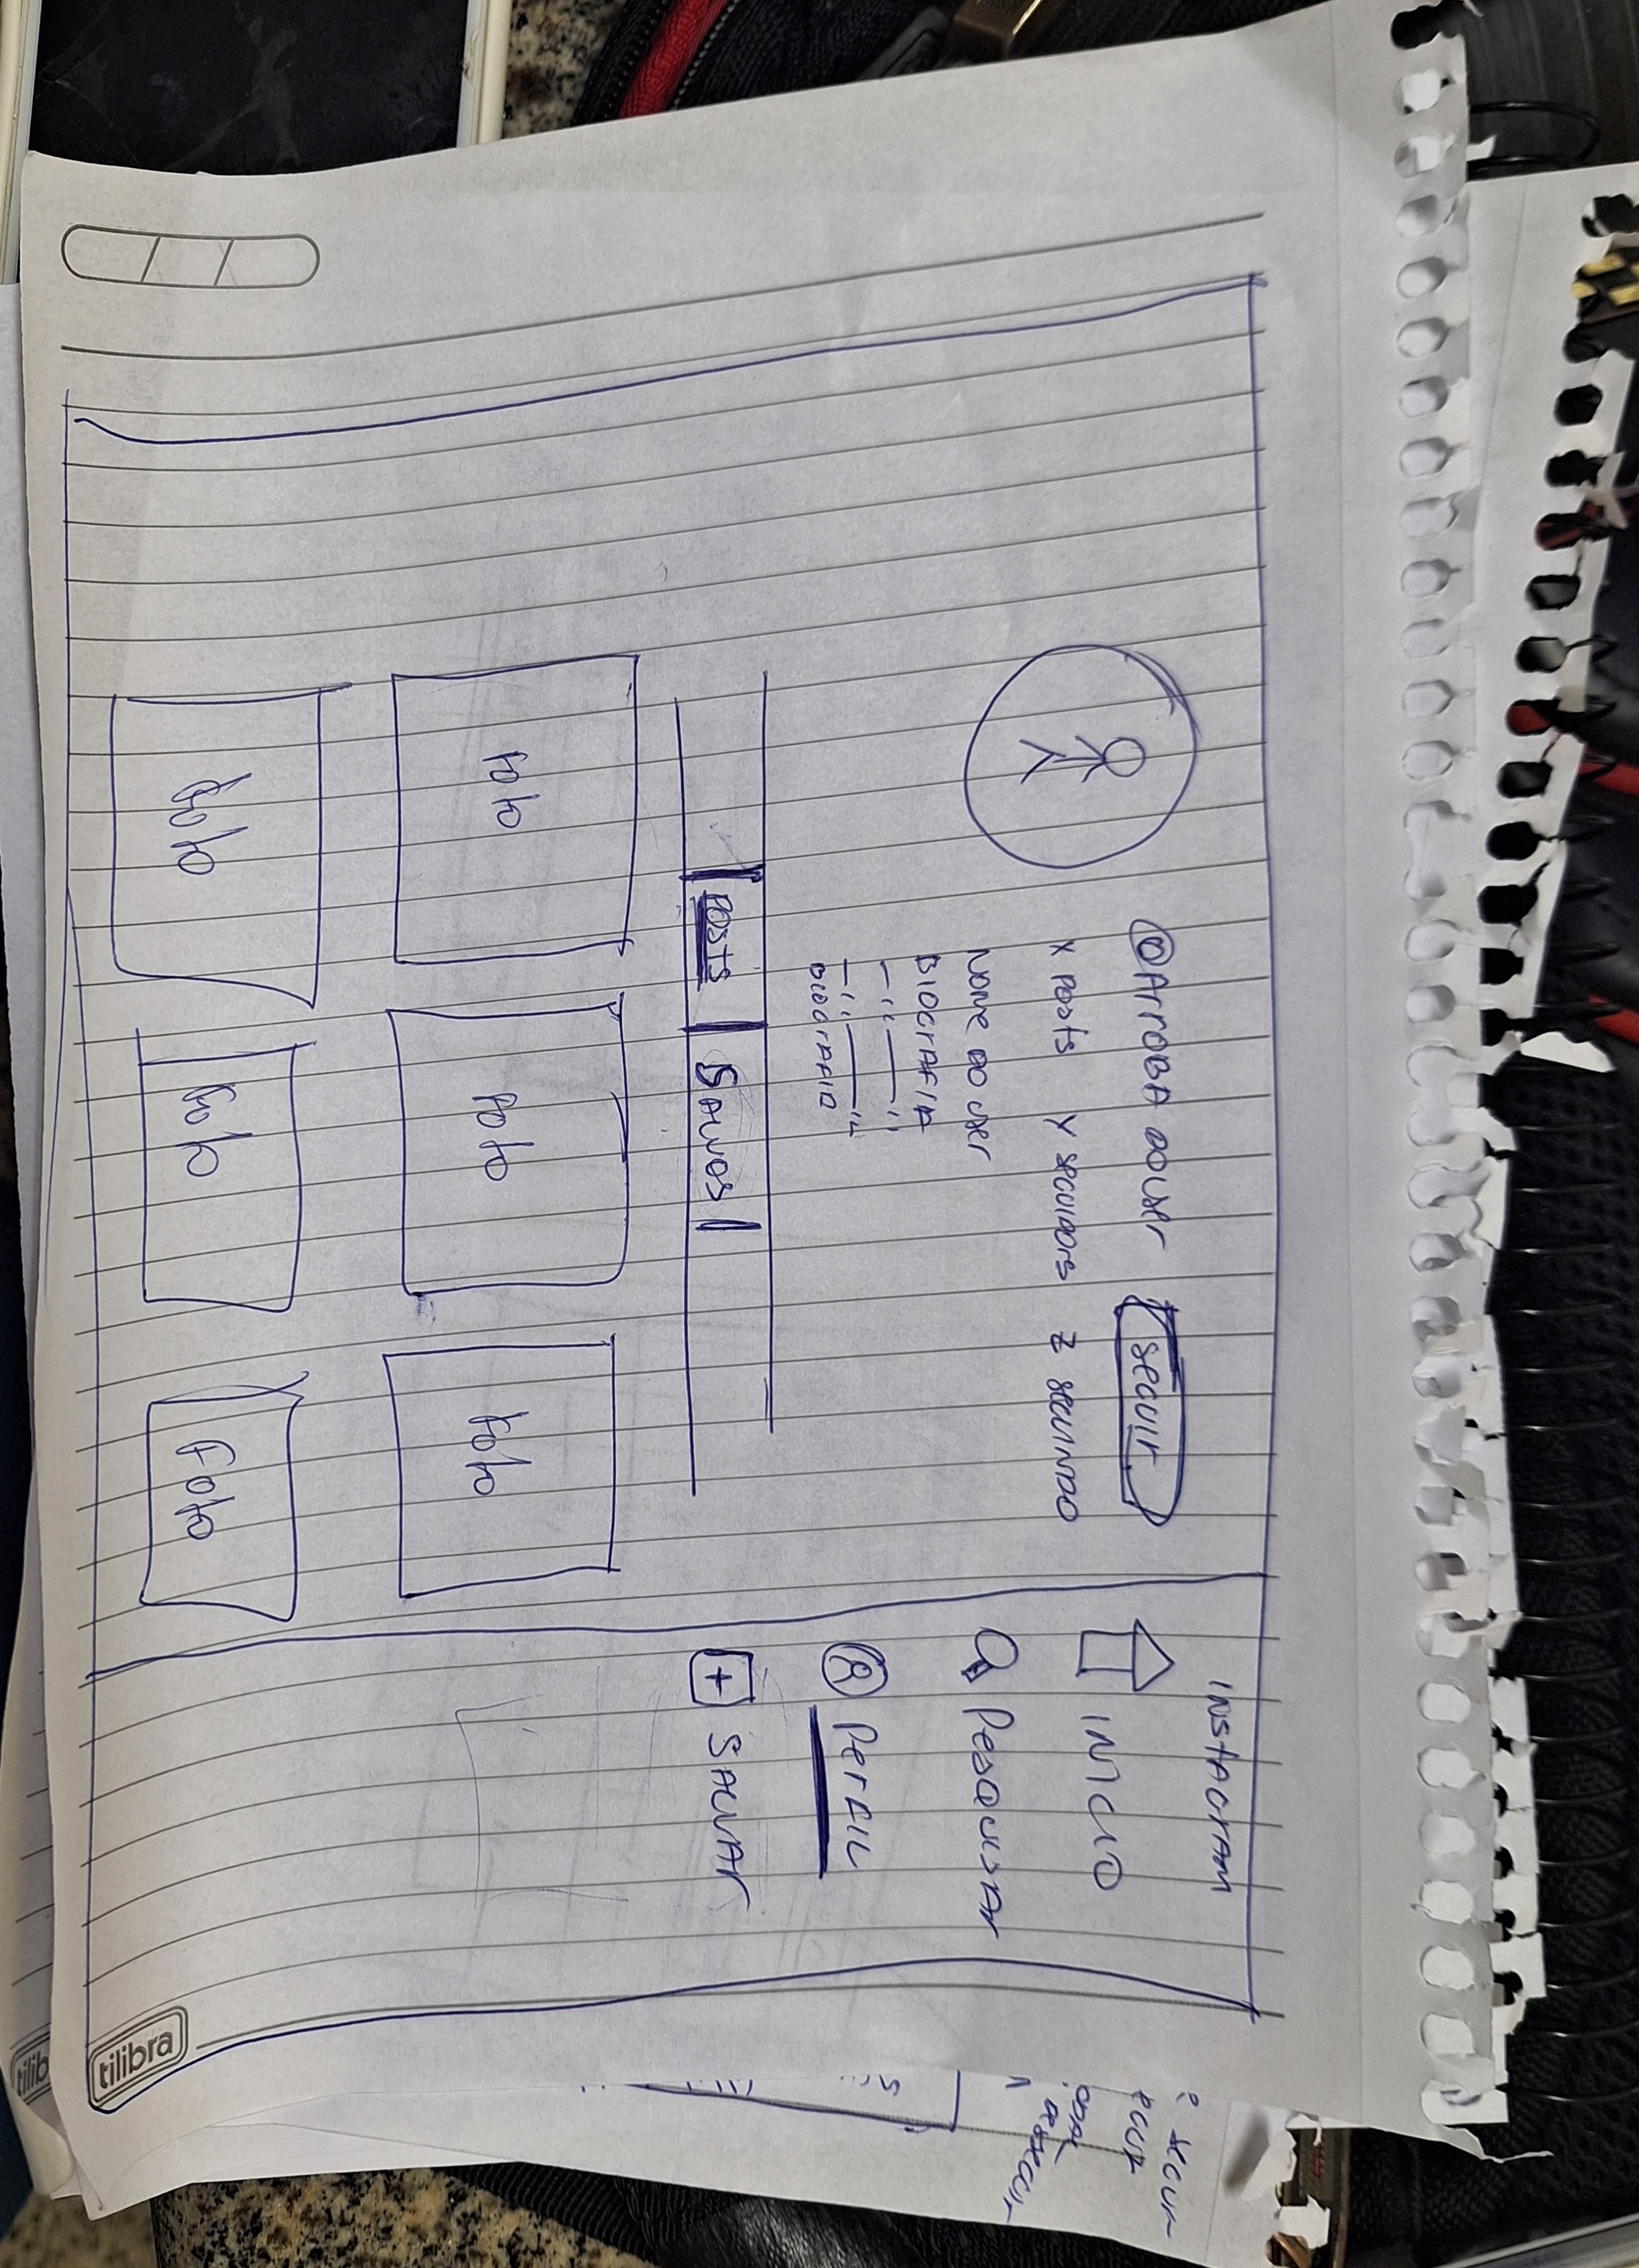 INSTAGRAM
INICIO
PESQUISAR
PERFIL
SALVAR
@ArrOBA DO USER
SEGUIR
X Posts Y SEGUIDORS Z SEGUINDO
NOME DO USER
BIOGRAFIA
BIOGRAFIA
Posts
SALVOS
Foto
Foto
Foto
Foto
Foto
Foto
tilibra
tilib